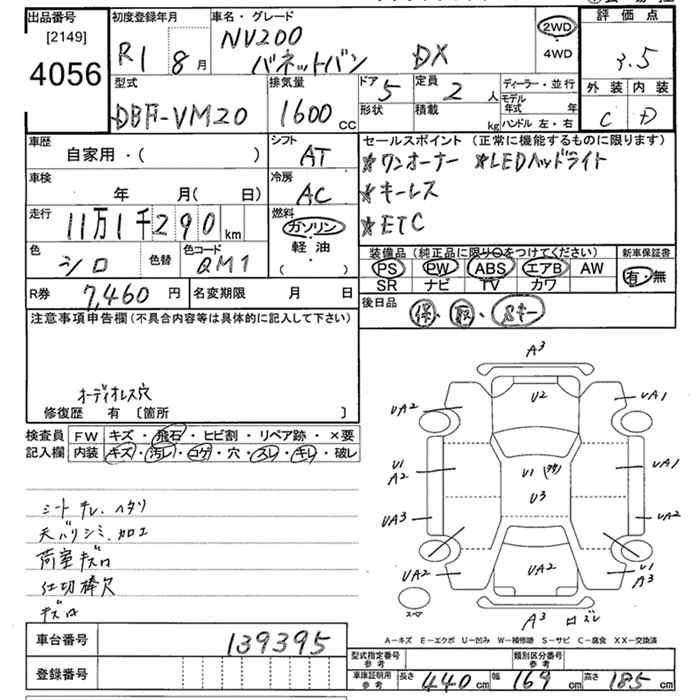 出品番号 [2149] 4056
初度登録年月 R1 8月
車名・グレード NV200 バネットバン DX
2WD・4WD
評価点 3.5
外装 C 内装 D
型式 DBF-VM20
排気量 1600cc
ドア 5 形状
定員 2人 積載 kg
ディーラー・並行
モデル年式 年
ハンドル 左・右
車歴 自家用・( )
シフト AT
車検 年 月( 日)
冷房 AC
走行 11万1千290km
燃料 ガソリン・軽油 ( ・ )
色 シロ 色替
色コード QM1
セールスポイント(正常に機能するものに限ります)
★ワンオーナー ★LEDヘッドライト
★キーレス
★ETC
装備品(純正品に限り○をつけてください)
PS PW ABS エアB AW
SR ナビ TV カワ
新車保証書 有・無
R券 7,460円
名変期限 月 日
後日品 保・取・
注意事項申告欄(不具合内容等は具体的に記入して下さい)
オーディオレス穴
修復歴 有〔箇所 〕
検査員記入欄
FW キズ・飛石・ヒビ割・リペア跡・×要
内装 キズ・汚レ・コゲ・穴・スレ・キレ・破レ
シート チレ、ヘタリ
天バリシミ、加工
荷室キズロ
仕切棒欠
キズロ
A3
U2
UA2
UA1
U1
A2
U1
U3
UA1
UA3
UA2
UA2
UA2
UA2
U1
A3
A3 ロズレ
A-キズ E-エクボ U-凹み W-補修跡 S-サビ C-腐食 XX-交換済
車台番号 139395
登録番号
型式指定番号 参考
類別区分番号 参考
車庫証明用 参考 長さ 440cm 幅 169cm 高さ 185cm